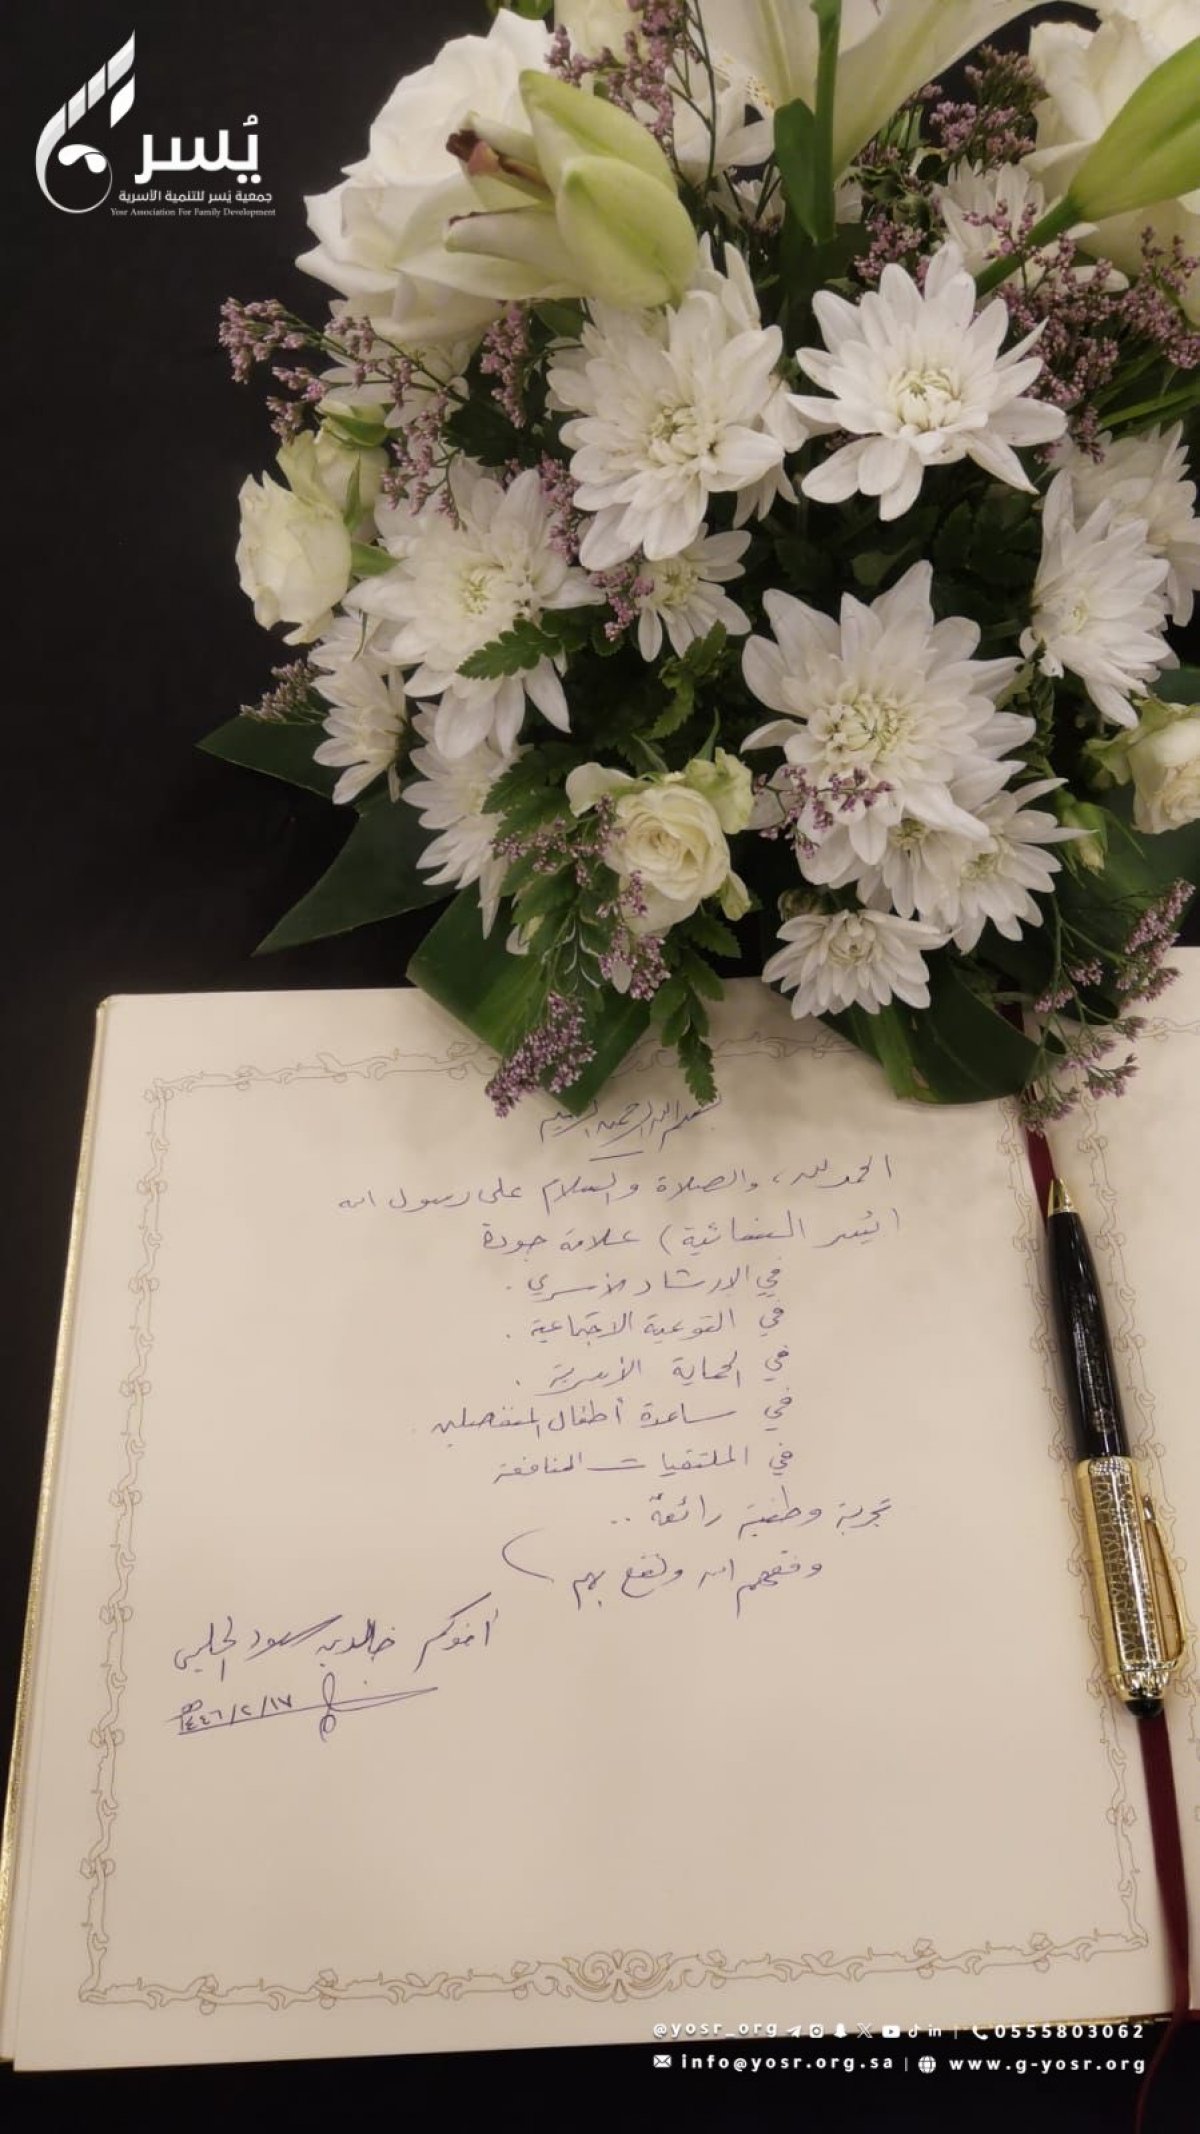 يُسر
جمعية يُسر للتنمية الأسرية
Yosr Association For Family Development
بسم الله الرحمن الرحيم
الحمد لله، والصلاة والسلام على رسول الله
(يُسر النسائية) علامة جودة
في الإرشاد الأسري .
في التوعية الاجتماعية .
في الحماية الأسرية .
في مساعدة أطفال المنفصلين .
في الملتقيات النافعة
تجربة وطنية رائعة ..
وفقهم الله ونفع بهم
أخوكم خالد بن سعود الحليبي
١٤٤٦/٢/١٧هـ
@yosr_org | 0555803062
info@yosr.org.sa | www.g-yosr.org